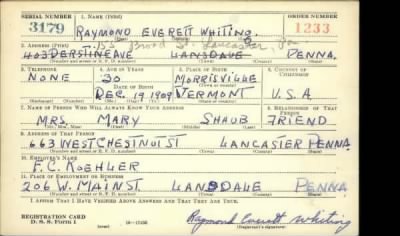 SERIAL NUMBER 1. NAME (Print) ORDER NUMBER
3179 RAYMOND EVERETT WHITING. 1233
(First) (Middle) (Last)
2. ADDRESS (Print) Broad St. Lancaster, Pa
403 DERSTINE AVE LANSDALE PENNA.
(Number and street or R. F. D. number) (Town) (County) (State)
3. TELEPHONE 4. AGE IN YEARS 5. PLACE OF BIRTH 6. COUNTRY OF CITIZENSHIP
NONE 30 MORRISVILLE
DATE OF BIRTH (Town or county)
DEC 19 1909 VERMONT U.S.A
(Exchange) (Number) (Mo.) (Day) (Yr.) (State or country)
7. NAME OF PERSON WHO WILL ALWAYS KNOW YOUR ADDRESS 8. RELATIONSHIP OF THAT PERSON
MRS. MARY SHAUB FRIEND
(Mr., Mrs., Miss) (First) (Middle) (Last)
9. ADDRESS OF THAT PERSON
663 WEST CHESTNUT ST LANCASTER PENNA
(Number and street or R. F. D. number) (Town) (County) (State)
10. EMPLOYER'S NAME
F. C. KOEHLER
11. PLACE OF EMPLOYMENT OR BUSINESS
206 W. MAIN ST. LANSDALE PENNA
(Number and street or R. F. D. number) (Town) (County) (State)
I AFFIRM THAT I HAVE VERIFIED ABOVE ANSWERS AND THAT THEY ARE TRUE.
REGISTRATION CARD
D. S. S. Form 1 Raymond Everett Whiting
(over) (Registrant's signature)